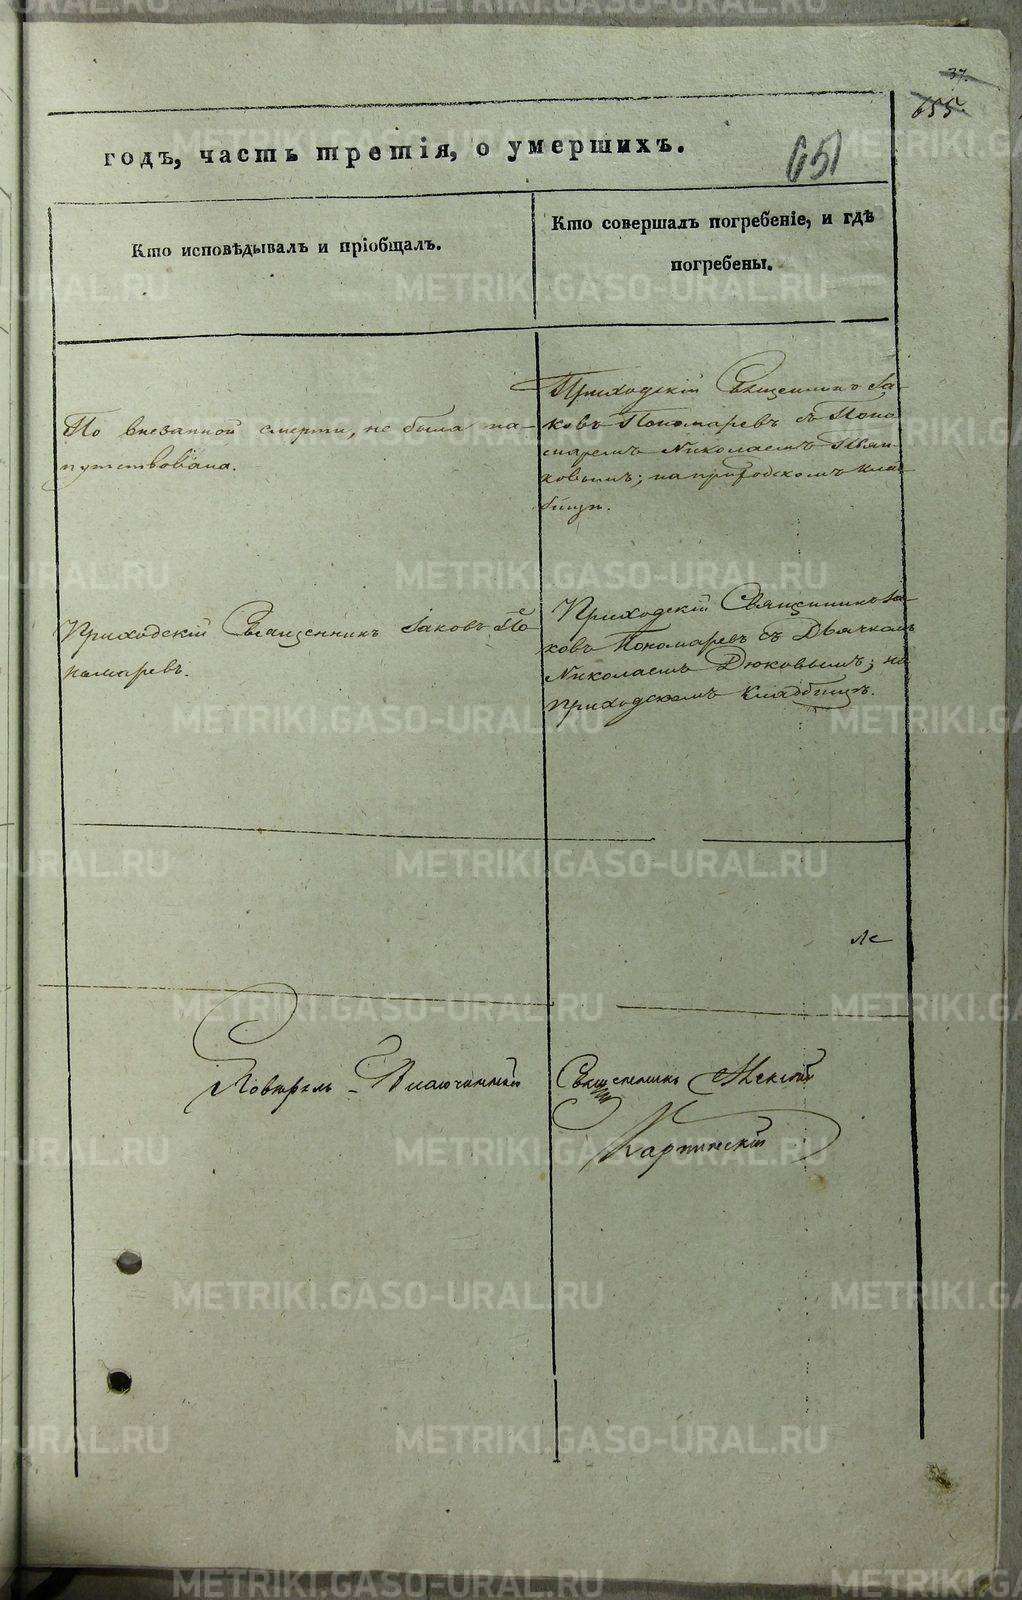 37.
655.
651
годъ, часть третія, о умершихъ.
Кто исповѣдывалъ и пріобщалъ.
Кто совершалъ погребеніе, и гдѣ
погребены.
По внезапной смерти, не была на-
путствована.
Приходскій Священникъ Іа-
ковъ Пономаревъ съ Поно
маремъ Николаемъ
на приходскомъ клад
бищѣ.
Приходскій Священникъ Іаковъ По
номаревъ.
Приходскій Священникъ Іа-
ковъ Пономаревъ съ Дьячкомъ
Николаемъ Дюковымъ; на
приходскомъ кладбищѣ.
Священникъ
Карпинскій
METRIKI.GASO-URAL.RU